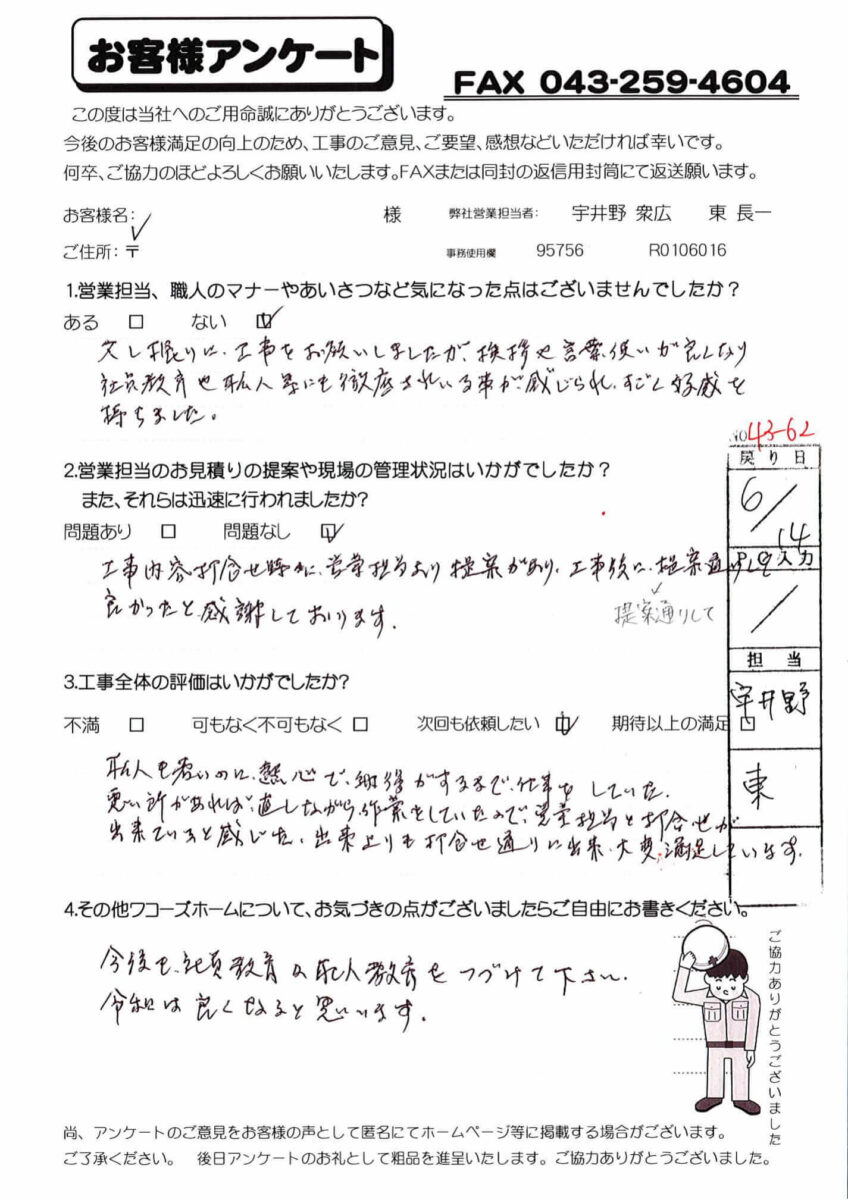 お客様アンケート
FAX 043-259-4604
この度は当社へのご用命誠にありがとうございます。
今後のお客様満足の向上のため、工事のご意見、ご要望、感想などいただければ幸いです。
何卒、ご協力のほどよろしくお願いいたします。FAXまたは同封の返信用封筒にて返送願います。
お客様名: 様 弊社営業担当者: 宇井野 衆広 東 長一
ご住所: 〒 事務使用欄 95756 R0106016
1.営業担当、職人のマナーやあいさつなど気になった点はございませんでしたか?
ある □ ない ☑
久し振りに、工事をお願いしましたが、挨拶や言葉使いが良くなり
社員教育や職人等にも徹底されている事が、感じられ、すごく好感を
持ちました。
NO43-62
戻り日
6/14
2.営業担当のお見積りの提案や現場の管理状況はいかがでしたか?
また、それらは迅速に行われましたか?
問題あり □ 問題なし ☑
工事内容打合せ時に、営業担当より提案があり、工事後に、提案通りして
良かったと感謝しております。
提案通りして
入力
/
担当
宇井野
東
3.工事全体の評価はいかがでしたか?
不満 □ 可もなく不可もなく □ 次回も依頼したい ☑ 期待以上の満足 □
職人も若いのに、熱心で、納得がするまで、仕事をしていた。
悪い所があれば、直しながら、作業をしていたので、営業担当と打合せが
出来ていると感じた。出来上りも打合せ通りに出来、大変、満足しています。
4.その他ワコーズホームについて、お気づきの点がございましたらご自由にお書きください。
今後も、社員教育や職人教育をつづけて下さい。
会社は良くなると思います。
ご協力ありがとうございました
尚、アンケートのご意見をお客様の声として匿名にてホームページ等に掲載する場合がございます。
ご了承ください。 後日アンケートのお礼として粗品を進呈いたします。ご協力ありがとうございました。